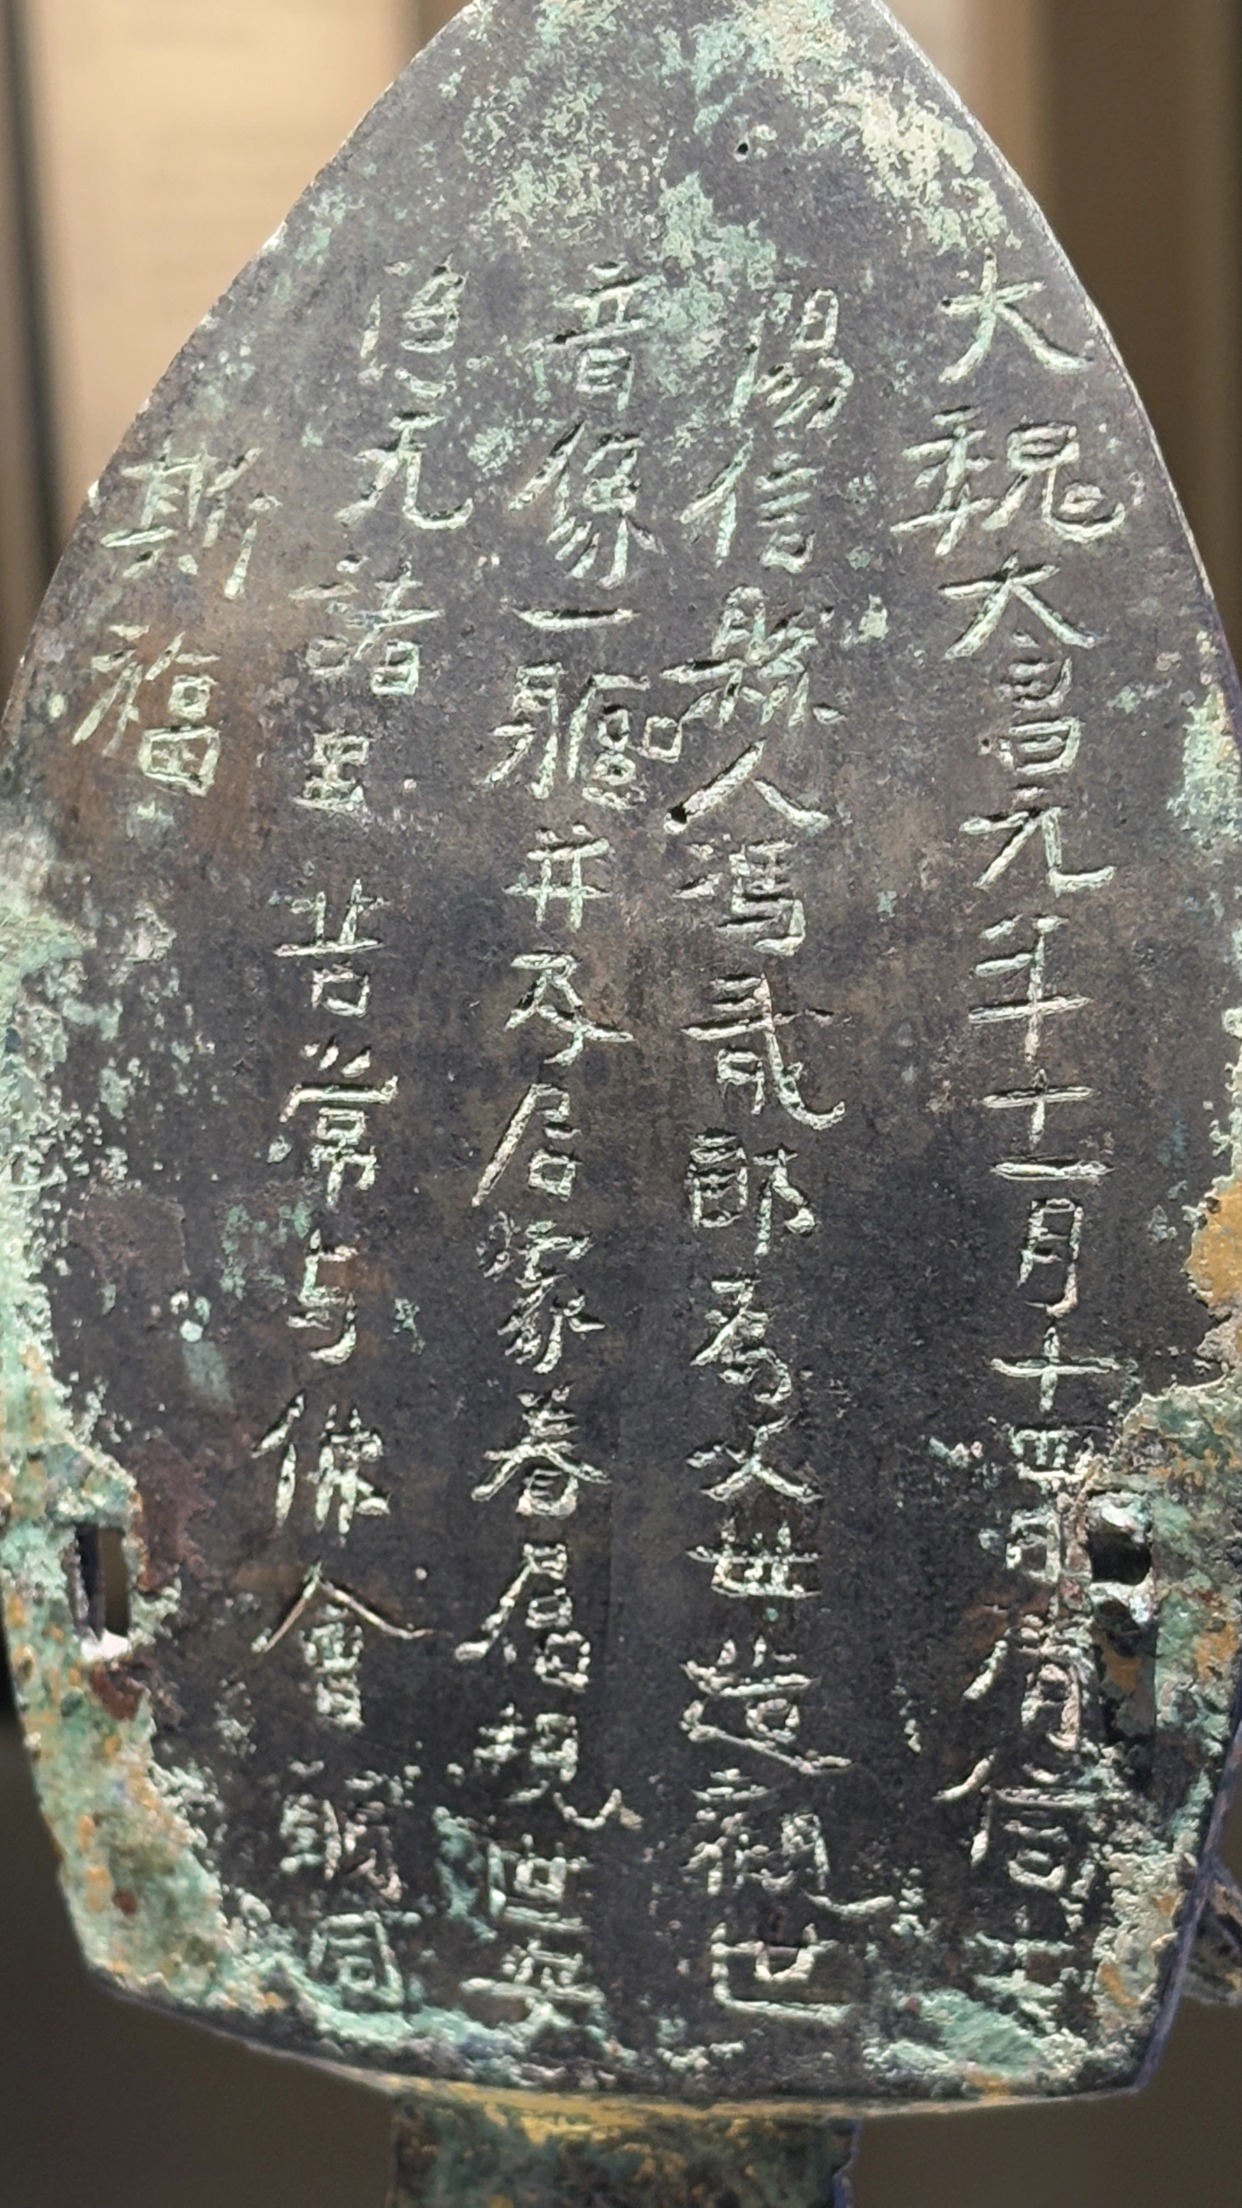 大魏大昌元年十一月十四日清信士
陽信縣人馮貳郎為父母造觀世
音像一軀并及居家眷属現世安
隱无諸患苦常与佛會願同
斯福